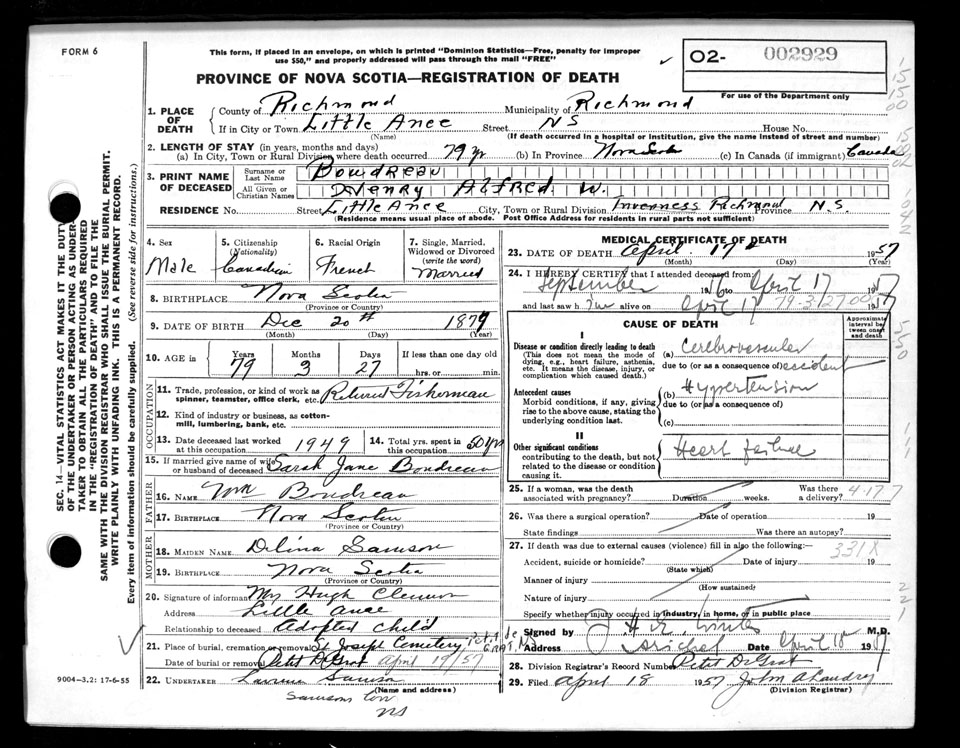 FORM 6
This form, if placed in an envelope, on which is printed "Dominion Statistics—Free, penalty for improper
use $50," and properly addressed will pass through the mail "FREE"
O2- 002929
For use of the Department only
PROVINCE OF NOVA SCOTIA—REGISTRATION OF DEATH
1. PLACE OF DEATH
County of Richmond Municipality of Richmond
If in City or Town Little Ance Street NS House No.
(Name) (If death occurred in a hospital or institution, give the name instead of street and number)
2. LENGTH OF STAY (in years, months and days)
(a) In City, Town or Rural Division where death occurred 79 yr (b) In Province Nova Scotia (c) In Canada (if immigrant) Canada
3. PRINT NAME OF DECEASED
Surname or Last Name Boudreau
All Given or Christian Names Henry Alfred W.
RESIDENCE No. Street Little Ance City, Town or Rural Division Inverness Richmond Province N.S.
(Residence means usual place of abode. Post Office Address for residents in rural parts not sufficient)
4. Sex Male
5. Citizenship (Nationality) Canadian
6. Racial Origin French
7. Single, Married, Widowed or Divorced (write the word) Married
8. BIRTHPLACE Nova Scotia
(Province or Country)
9. DATE OF BIRTH Dec 20th 1879
(Month) (Day) (Year)
10. AGE in Years 79 Months 3 Days 27 If less than one day
hrs. or min.
OCCUPATION
11. Trade, profession, or kind of work as spinner, teamster, office clerk, etc. Retired Fisherman
12. Kind of industry or business, as cotton-mill, lumbering, bank, etc.
13. Date deceased last worked at this occupation 1949
14. Total yrs. spent in this occupation 50 yrs
15. If married give name of wife or husband of deceased Sarah Jane Boudreau
FATHER
16. Name Wm Boudreau
17. Birthplace Nova Scotia
(Province or Country)
MOTHER
18. MAIDEN NAME Delina Samson
19. BIRTHPLACE Nova Scotia
(Province or Country)
20. Signature of informant Hugh
Address Little Ance
Relationship to deceased Adopted child
21. Place of burial, cremation or removal St Joseph Cemetery Petit de Grat, NS
Date of burial or removal Petit DeGrat April 19/57
22. UNDERTAKER Samson
(Name and address)
Samsons Cove
NS
9004-3.2: 17-6-55
SEC. 14—VITAL STATISTICS ACT MAKES IT THE DUTY
OF THE UNDERTAKER OR PERSON ACTING AS UNDER-
TAKER TO OBTAIN ALL THE PARTICULARS REQUIRED
IN THE "REGISTRATION OF DEATH" AND TO FILE THE
SAME WITH THE DIVISION REGISTRAR WHO SHALL ISSUE THE BURIAL PERMIT.
WRITE PLAINLY WITH UNFADING INK. THIS IS A PERMANENT RECORD.
Every item of information should be carefully supplied. (See reverse side for instructions.)
MEDICAL CERTIFICATE OF DEATH
23. DATE OF DEATH April 17 1957
(Month) (Day) (Year)
24. I HEREBY CERTIFY that I attended deceased from:
September 1956 to April 17 1957
and last saw him alive on April 17 1957
79-3-27.00
CAUSE OF DEATH
Approximate interval between onset and death
I
Disease or condition directly leading to death
(This does not mean the mode of dying, e.g., heart failure, asthenia, etc. It means the disease, injury, or complication which caused death.)
(a) Cerebrovascular
due to (or as a consequence of) accident
Antecedent causes
Morbid conditions, if any, giving rise to the above cause, stating the underlying condition last.
(b) Hypertension
due to (or as a consequence of)
(c)
II
Other significant conditions
contributing to the death, but not related to the disease or condition causing it.
Heart failure
25. If a woman, was the death associated with pregnancy? Duration weeks. Was there a delivery? 4-17-7
26. Was there a surgical operation? Date of operation 19
State findings Was there an autopsy?
27. If death was due to external causes (violence) fill in also the following: 331X
Accident, suicide or homicide? Date of injury 19
(State which)
Manner of injury
(How sustained)
Nature of injury
Specify whether injury occurred in industry, in home, or in public place
Signed by M.D.
Address Arichat Date April 18 1957
28. Division Registrar's Record Number Petit DeGrat
29. Filed April 18 1957 John A Landry
(Division Registrar)